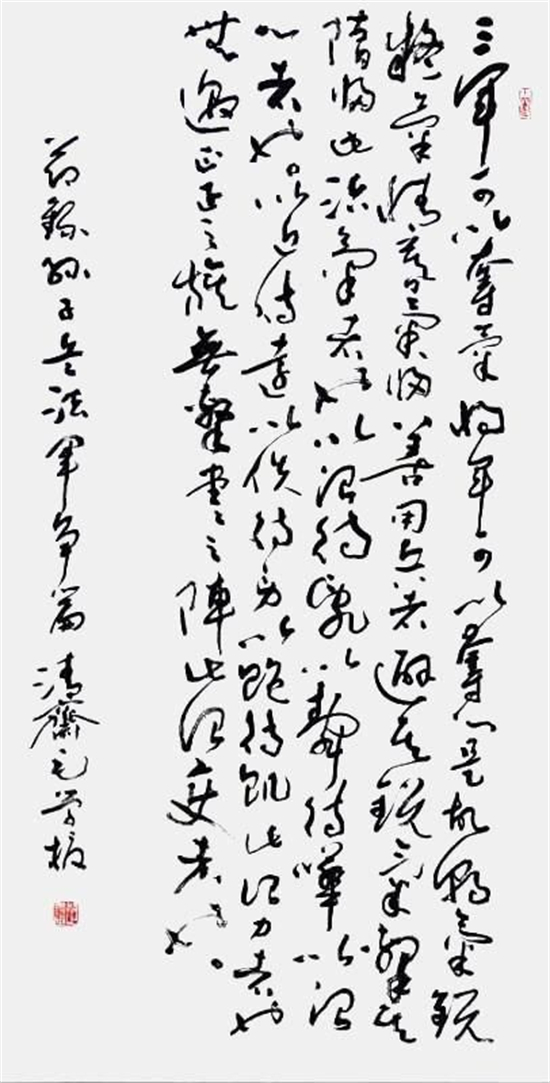 三軍可以奪氣將軍可以奪心是故朝氣銳
氣惰暮氣歸善用兵者避其銳氣擊其
惰歸此治氣者也以治待亂以靜待嘩以治
心者也以近待遠以佚待勞以飽待飢此治力者也
無邀正正之旗無擊堂堂之陣此治變者也
節錄孫子兵法軍争篇 清齋毛學